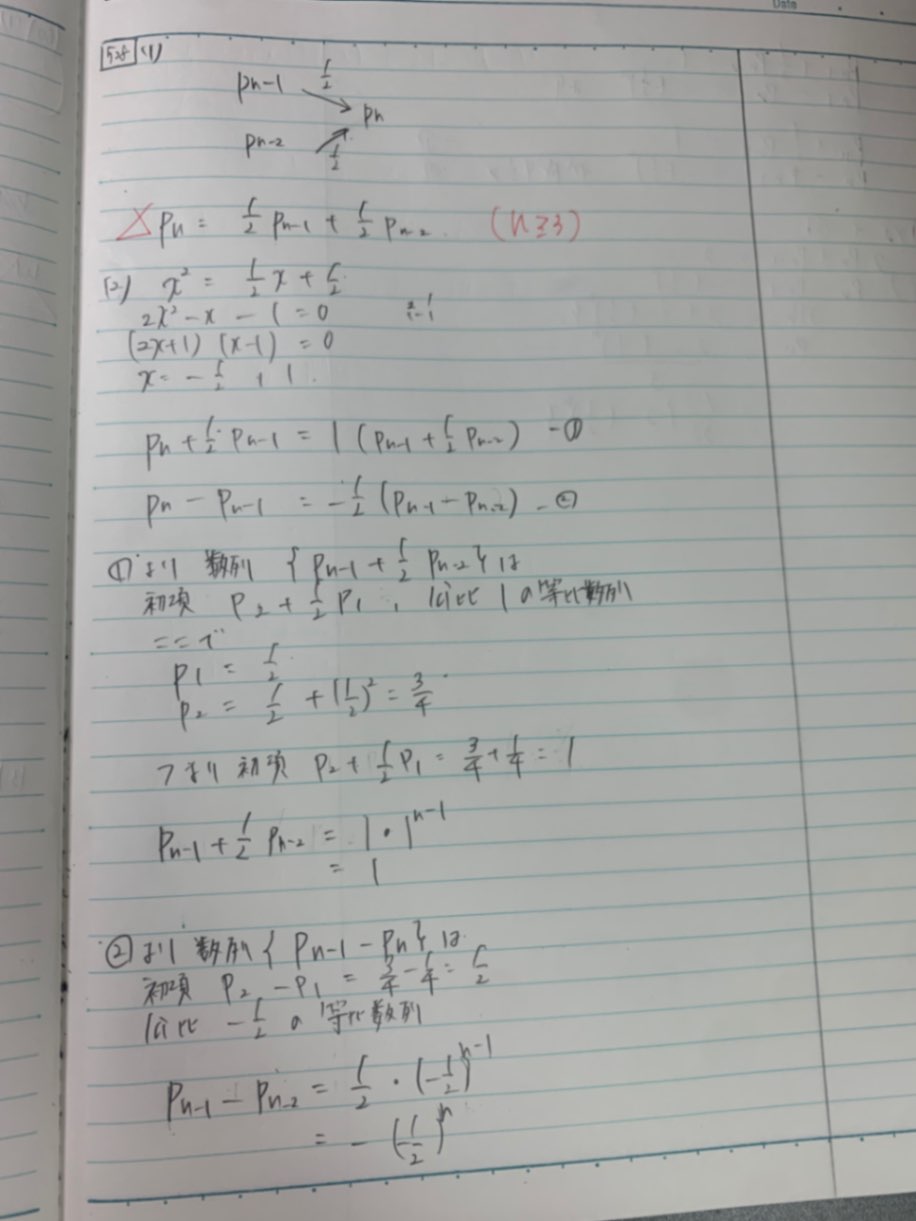 Date
528 (1)
pn-1 1/2
pn
pn-2 1/2
△ pn = 1/2 pn-1 + 1/2 pn-2 (n≧3)
(2) x² = 1/2 x + 1/2
2x² - x - 1 = 0
(2x+1)(x-1) = 0
x = -1/2, 1
pn + 1/2 pn-1 = 1 (pn-1 + 1/2 pn-2) -①
pn - pn-1 = -1/2 (pn-1 - pn-2) -②
①より 数列 {pn-1 + 1/2 pn-2} は
初項 p2 + 1/2 p1, 公比 1 の等比数列
ここで
p1 = 1/2
p2 = 1/2 + (1/2)² = 3/4
つまり 初項 p2 + 1/2 p1 = 3/4 + 1/4 = 1
pn-1 + 1/2 pn-2 = 1・1^n-1
= 1
②より 数列 {pn-1 - pn} は
初項 p2 - p1 =
公比 -1/2 の 等比数列
pn-1 - pn-2 = 1/2・(-1/2)^n-1
= -(1/2)^n